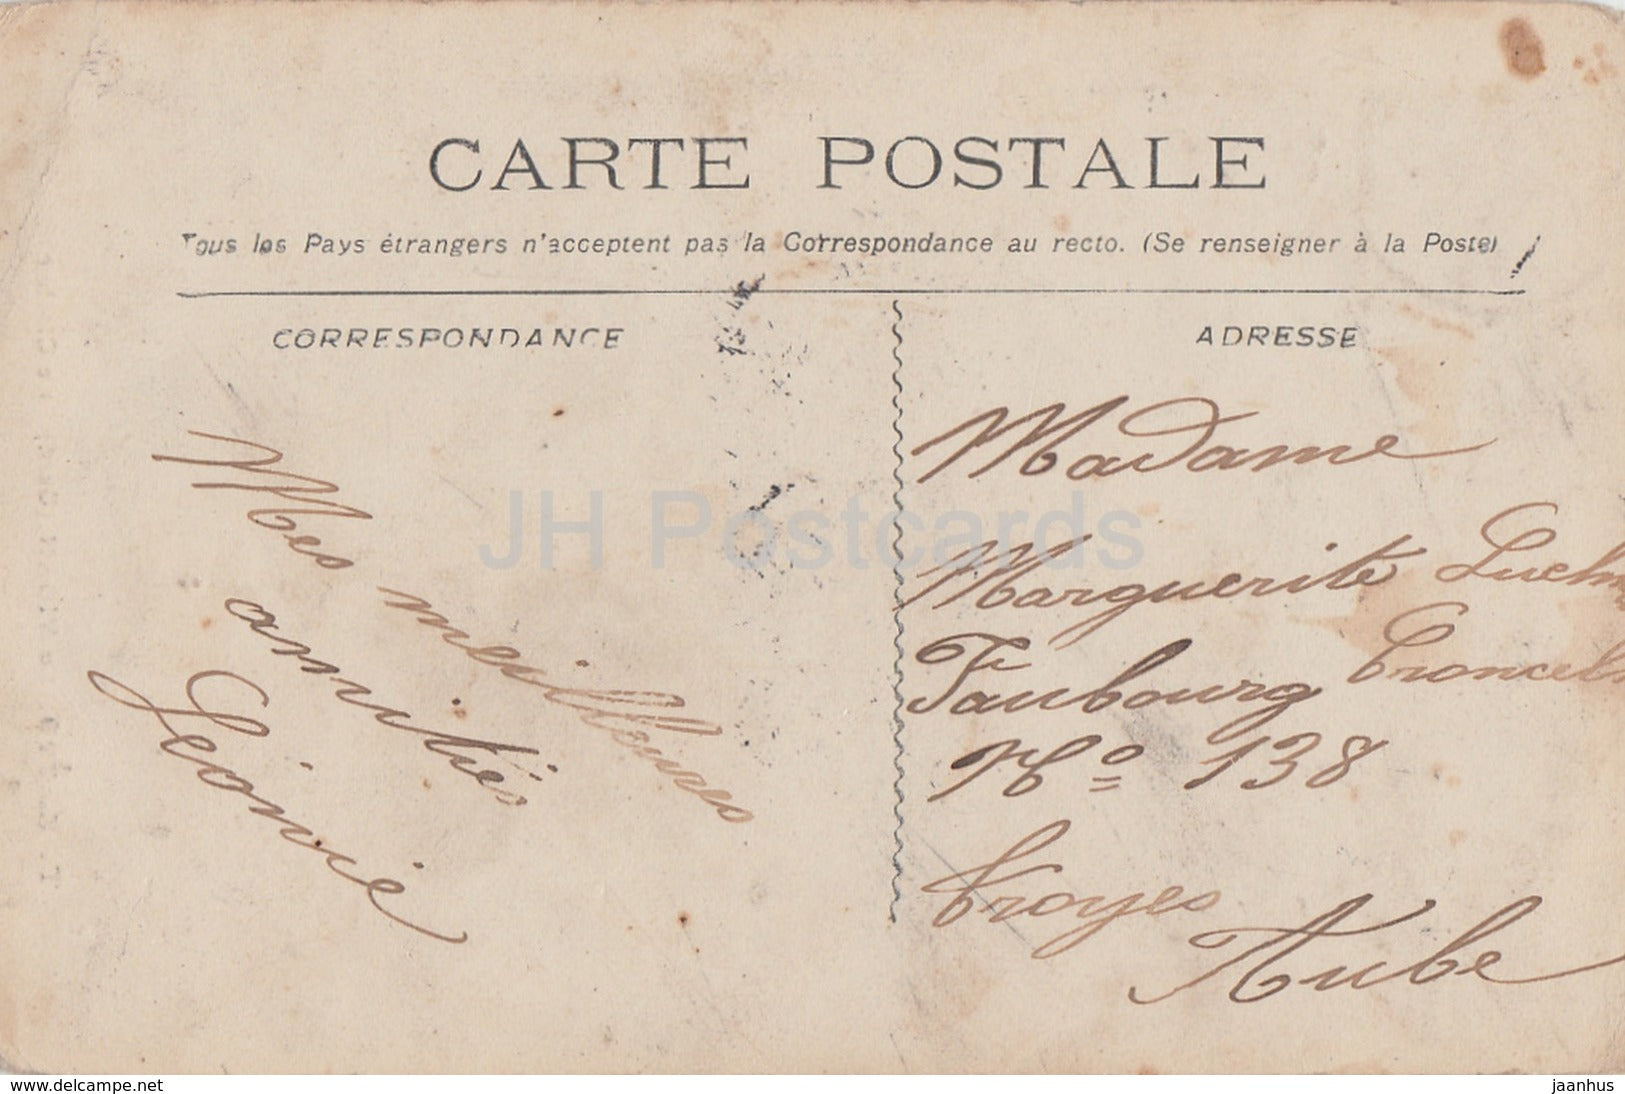 CARTE POSTALE
Tous les Pays étrangers n'acceptent pas la Correspondance au recto. (Se renseigner à la Poste)
CORRESPONDANCE
Mes meilleures
amitiés
Léonie
ADRESSE
Madame
Marguerite
Faubourg Croncels
No 138
Troyes
Aube
JH Postcards
www.delcampe.net
jaanhus